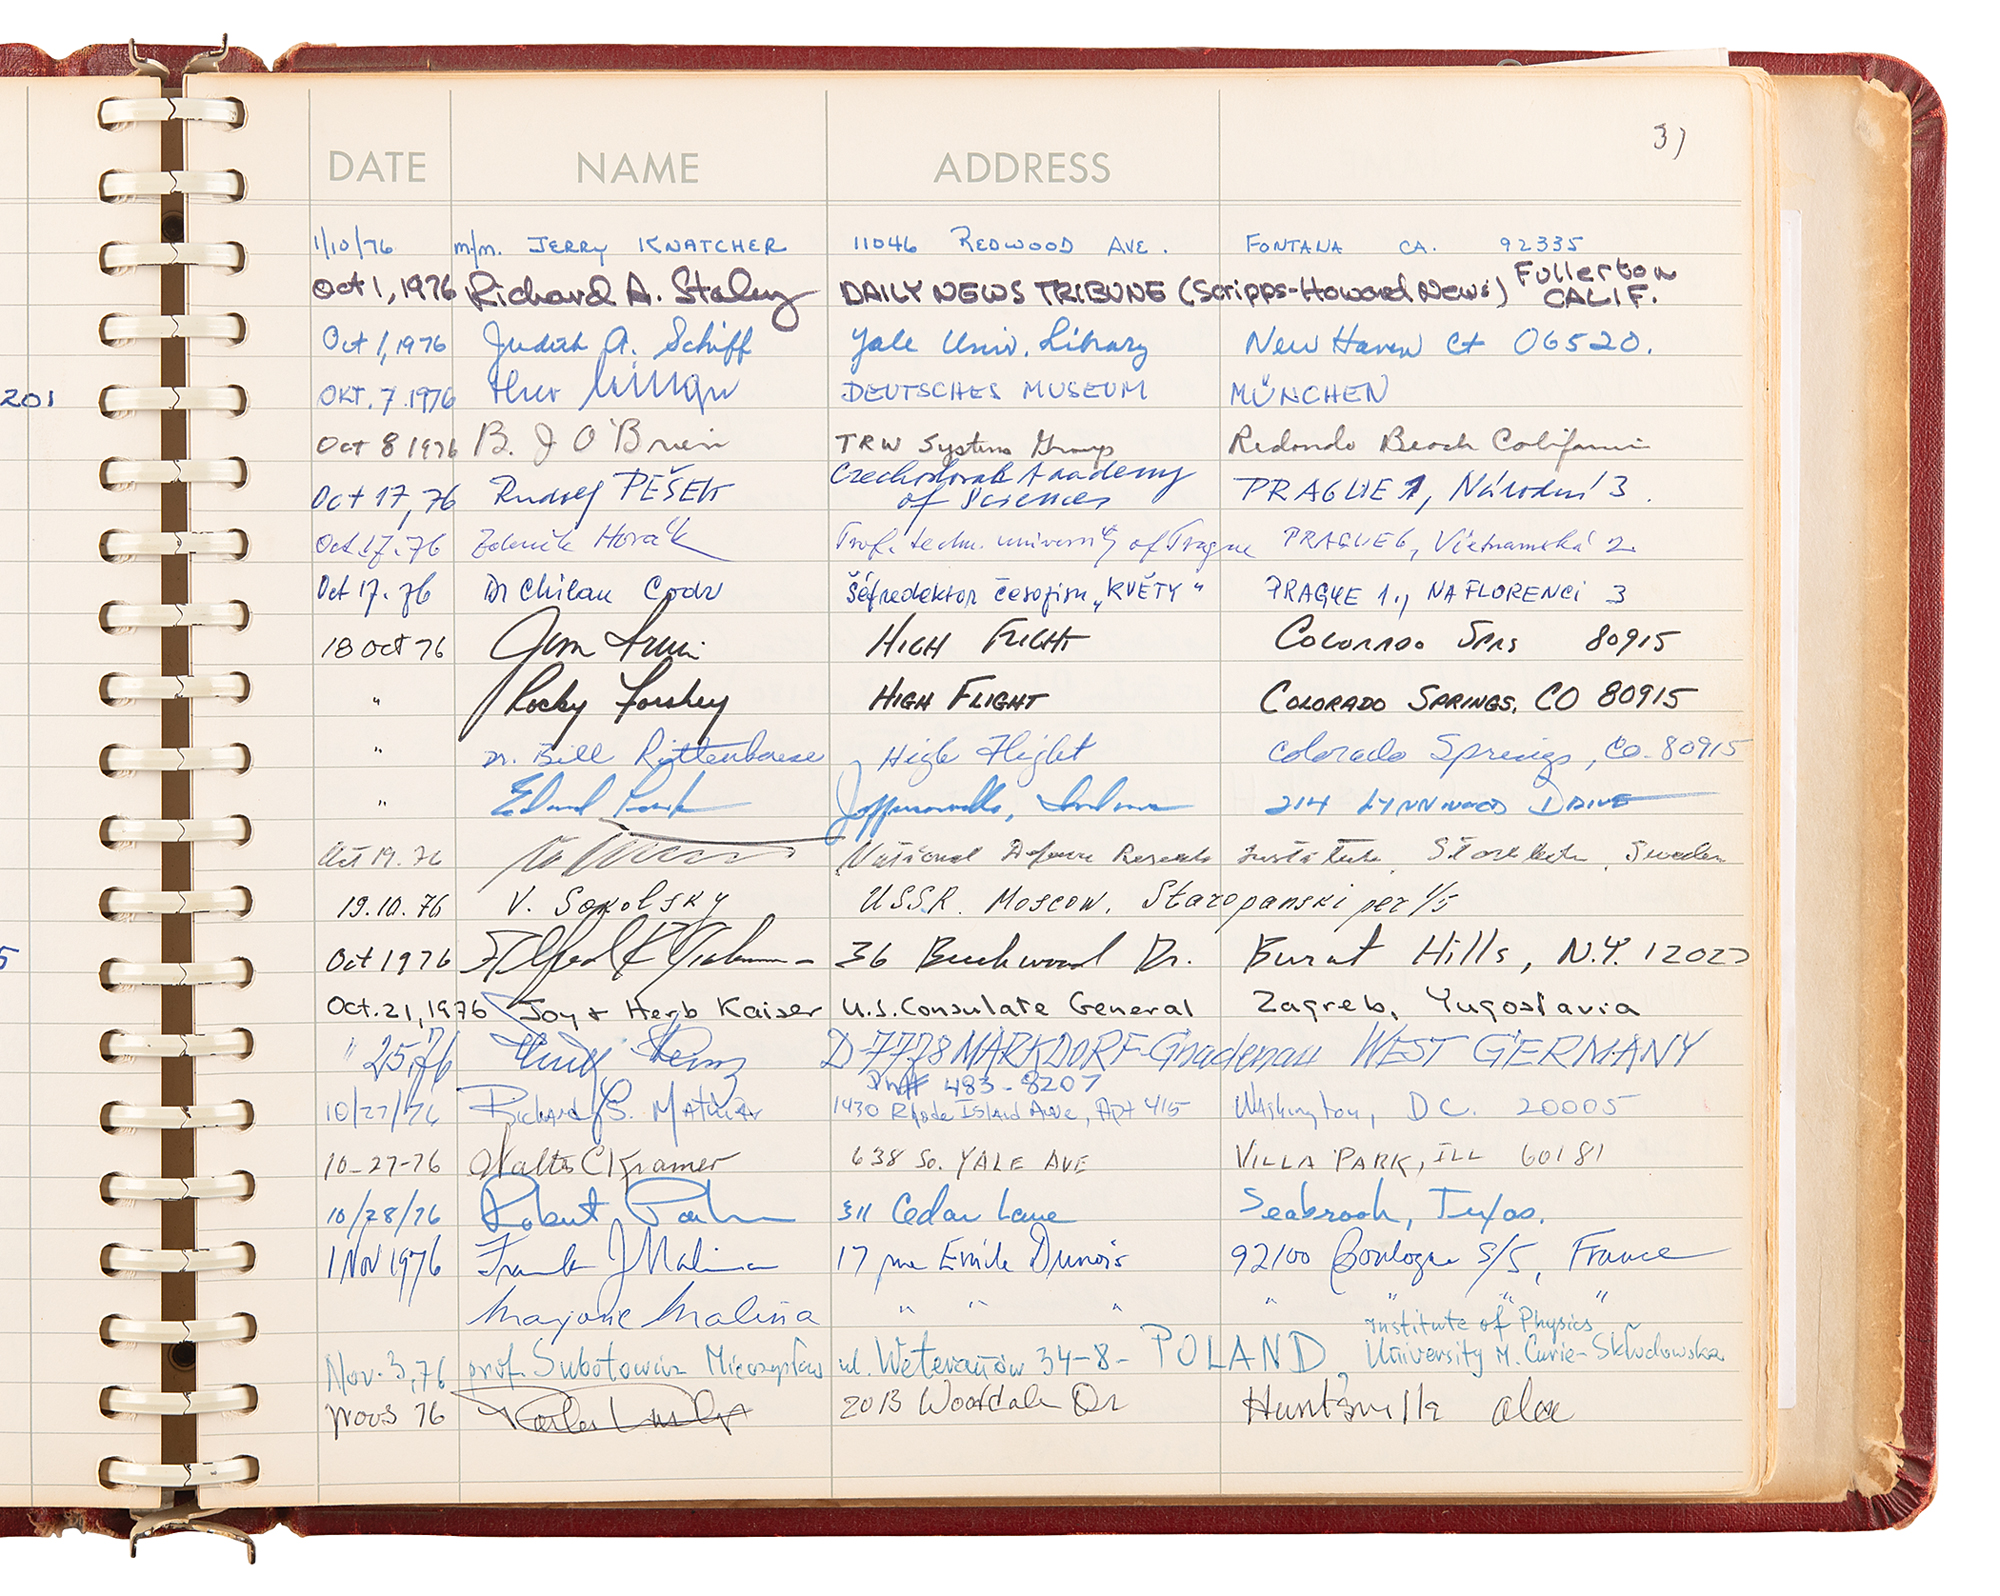 31
DATE NAME ADDRESS
1/10/76 m/m. JERRY KNATCHER 11046 REDWOOD AVE. FONTANA CA. 92335
Oct 1, 1976 Richard A. Staley DAILY NEWS TRIBUNE (Scripps-Howard News) Fullerton CALIF.
Oct 1, 1976 Judith A. Schiff Yale Univ. Library New Haven Ct 06520.
201
OKT. 7. 1976 DEUTSCHES MUSEUM MÜNCHEN
Oct 8 1976 B. J O'Brien TRW Systems Group Redondo Beach California
Oct 17, 76 Rudolf PEŠEK Czechoslovak Academy of Sciences PRAGUE 1, Národní 3.
Oct. 17. 76 Zdeněk Horák Prof. techn. university of Prague PRAGUE 6, Vietnamská 2.
Oct 17. 76 Dr Chilau Šéfredaktor časopisu „KVĚTY" PRAGUE 1., NA FLORENCI 3
18 Oct 76 Jim Irwin HIGH FLIGHT COLORADO SPRS 80915
" Rocky Forshey HIGH FLIGHT COLORADO SPRINGS, CO 80915
" Dr. Bill Rittenhouse High Flight Colorado Springs, Co. 80915
" Jeffersonville, Indiana 214 LYNNWOOD DRIVE
Oct 19. 76 National Defence Research Institute, Stockholm, Sweden
19.10.76 V. Sokolsky USSR. Moscow. Staropanski per 1/5
5
Oct 1976 Alfred 36 Buckwood Dr. Burnt Hills, N.Y. 12027
Oct. 21, 1976 Joy & Herb Kaiser U.S. Consulate General Zagreb, Yugoslavia
" 25, 76 D-7778 MARKDORF-Gnadenau WEST GERMANY
Ph# 483-8207
10/27/76 Richard S. 1430 Rhode Island Ave, Apt 415 Washington, D.C. 20005
10-27-76 Walter C Kramer 638 So. YALE AVE VILLA PARK, ILL 60181
10/28/76 Robert 311 Cedar Lane Seabrook, Texas.
1 Nov 1976 Frank J Malina 17 rue Emile Dunois 92100 Boulogne S/S, France
Marjorie Malina " " " " " "
Institute of Physics
Nov. 3, 76 prof. Subotowicz Mieczysław ul. Weteranów 34-8- POLAND, University M. Curie-Skłodowska
Nov 3 76 2013 Wooddale Dr Huntsville ala